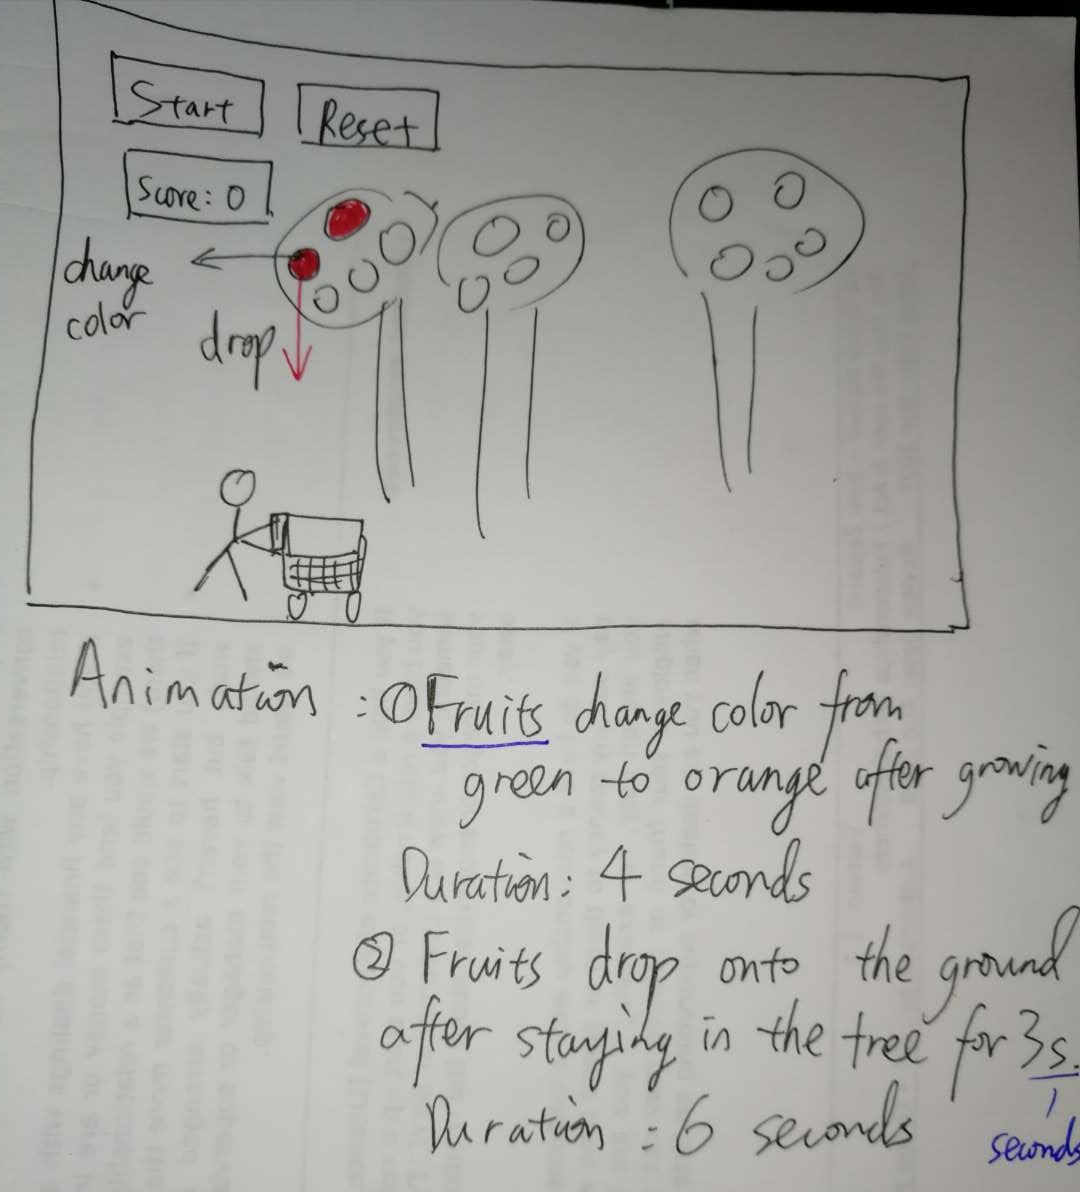 Start
Reset
Score: 0
change
color
drop
Animation : ① Fruits change color from
green to orange after growing
Duration: 4 seconds
② Fruits drop onto the ground
after staying in the tree for 3s.
Duration : 6 seconds
seconds